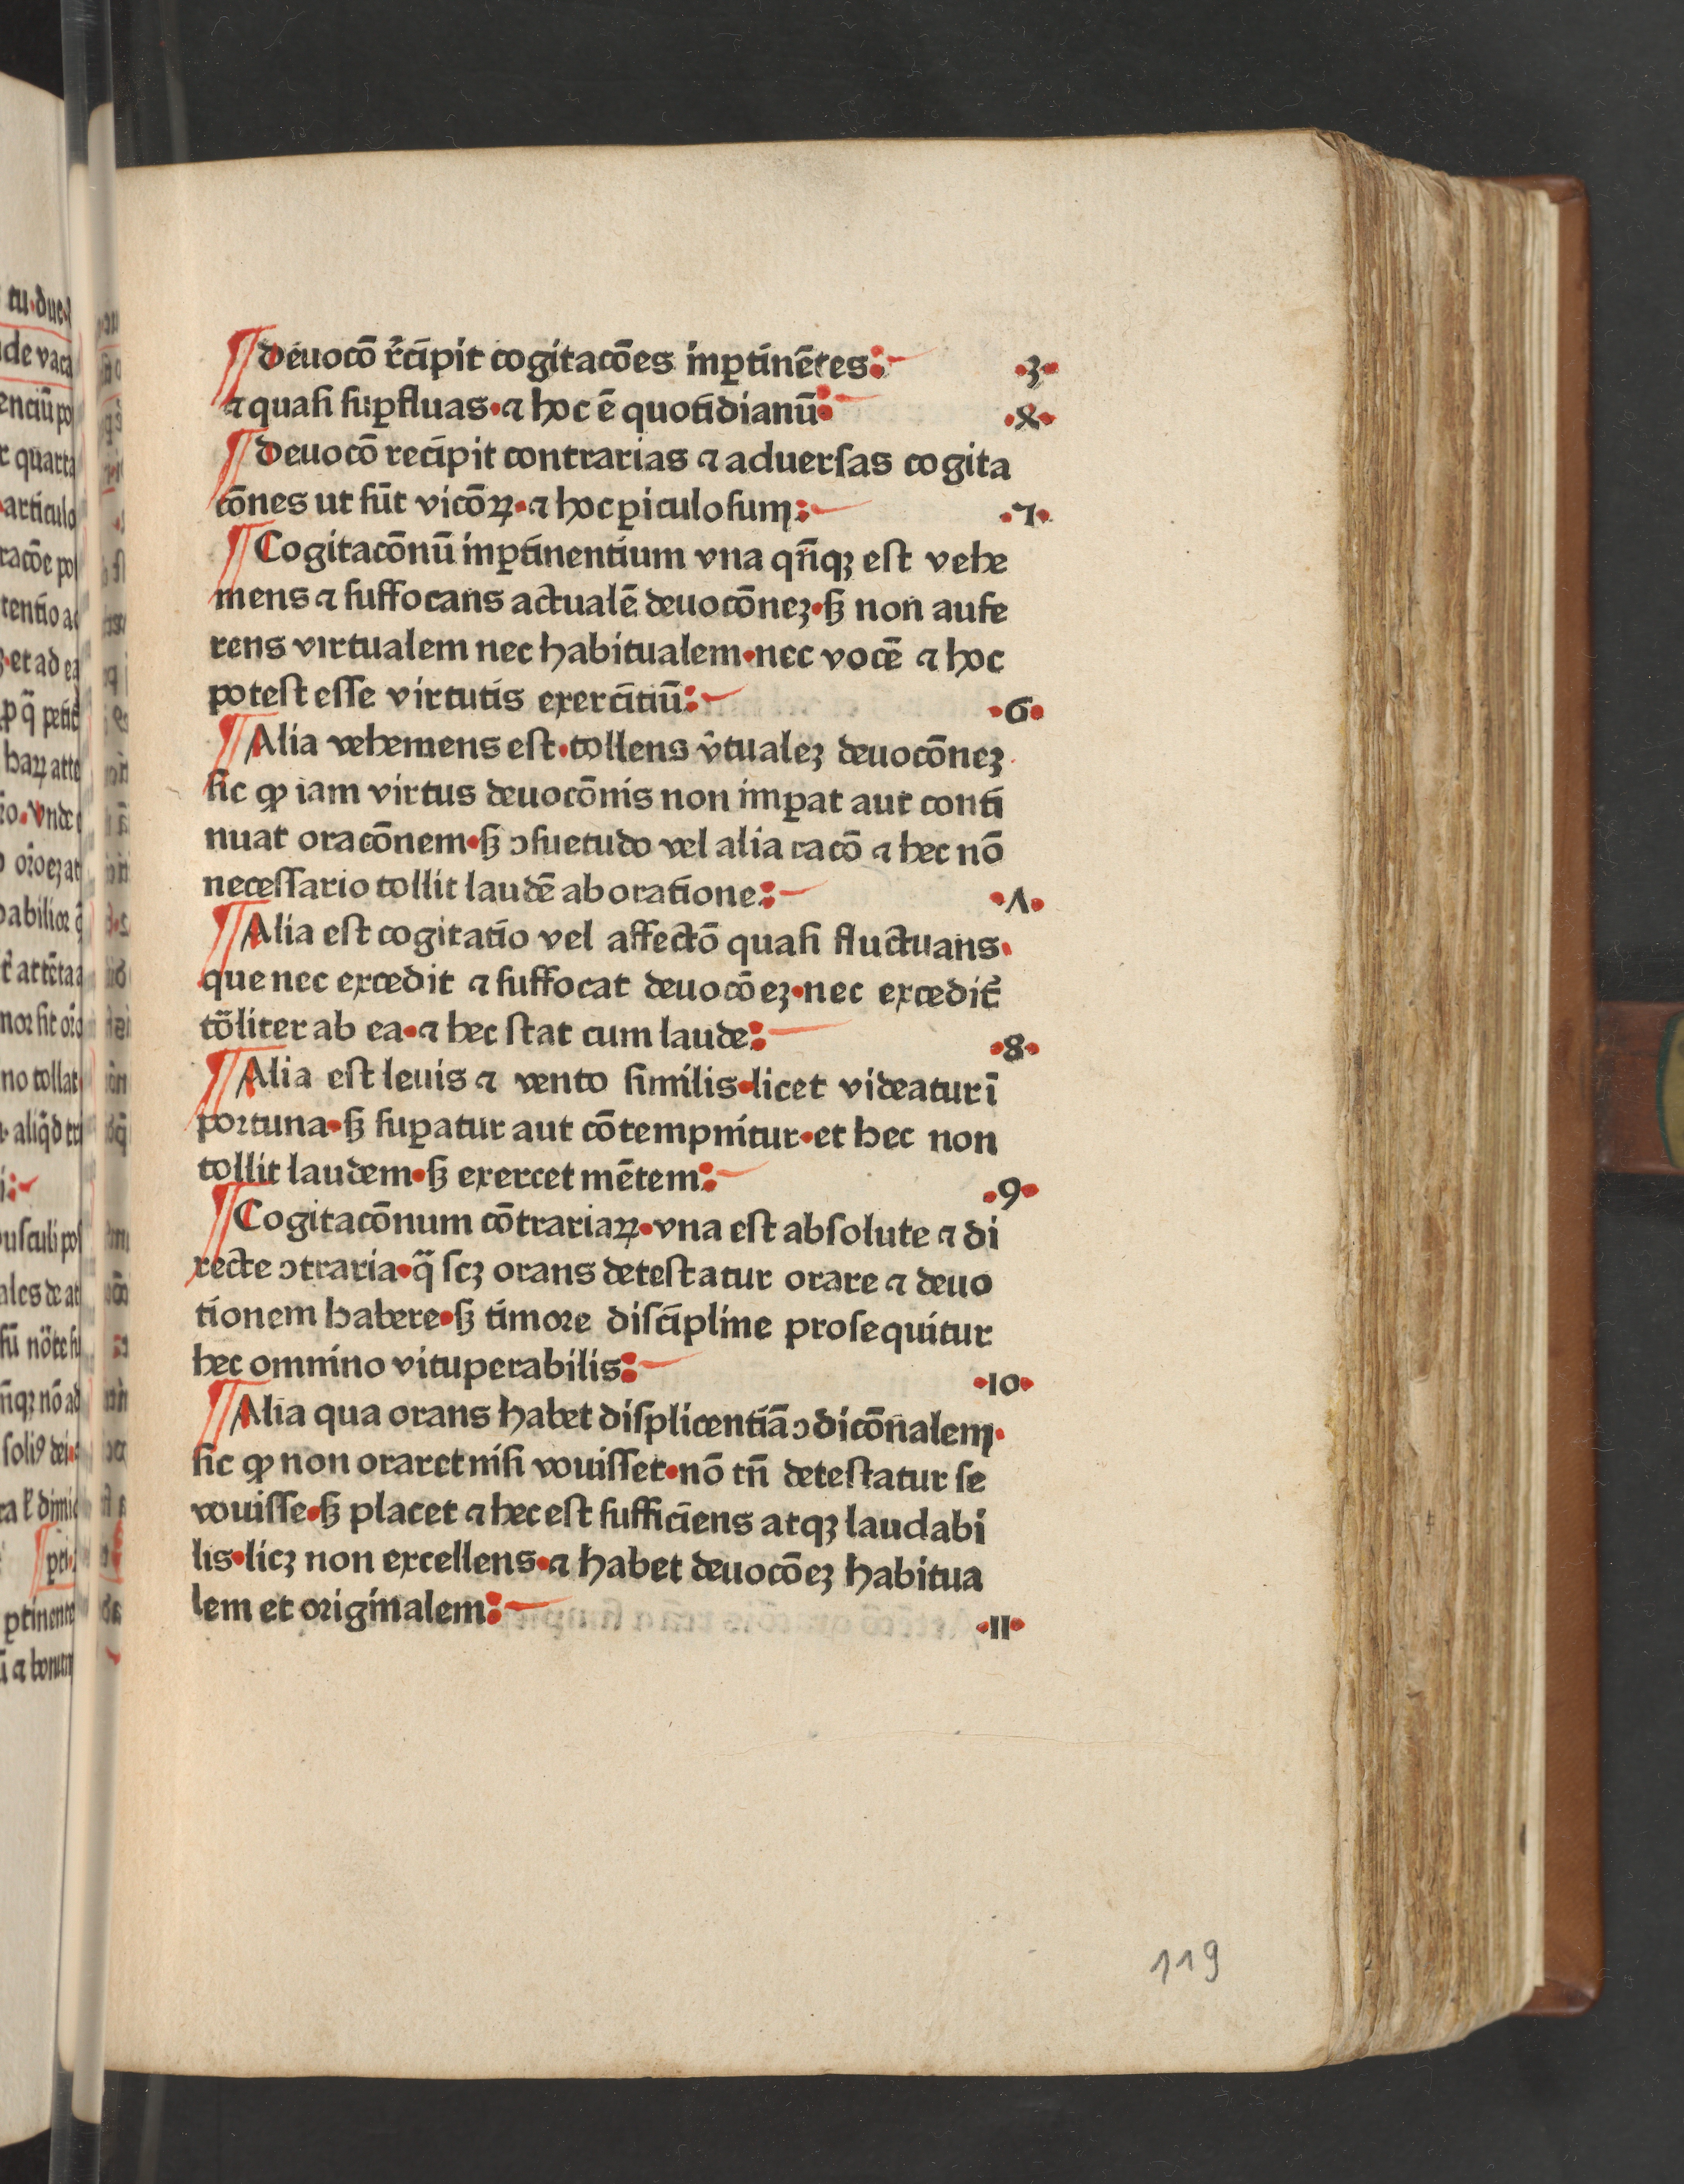 ¶ deuocō r̄cipit cogitacōes inꝑtinētes: ·3·
⁊ quaſi ſuꝑfluas·⁊ hoc ē quotidianū ·ꝝ·
¶ Deuocō recipit contrarias ⁊ aduerſas cogita
cōnes ut ſūt vicōꝝ·⁊ hoc ꝑiculoſum: ·7·
¶ Cogitacōnū inꝑtinentium vna qn̄qꝫ eſt vehe
mens ⁊ ſuffocans actualē deuocōneꝫ·ſꝫ non aufe
rens virtualem nec habitualem·nec vocē ⁊ hoc
poteſt eſſe virtutis exercitiū: ·6·
¶ Alia vehemens eſt·tollens v̄tualeꝫ deuocōneꝫ·
ſic ꝙ iam virtus deuocōnis non imꝑat aut conti
nuat oracōnem·ſꝫ ↄſuetudo vel alia racō ⁊ hec nō
neceſſario tollit laudē ab oratione: ·Λ·
¶ Alia eſt cogitatio vel affectō quaſi fluctuans·
que nec excedit ⁊ ſuffocat deuocōeꝫ·nec excedit̄
tōliter ab ea·⁊ hec ſtat cum laude: ·8·
¶ Alia eſt leuis ⁊ vento ſimilis·licet videatur ī
portuna·ſꝫ ſuꝑatur aut cōtempnitur·et hec non
tollit laudem·ſꝫ exercet mētem: ·9·
¶ Cogitacōnum cōtrariaꝝ·vna eſt abſolute ⁊ di
recte ↄtraria·q̄ ſcꝫ orans deteſtatur orare ⁊ deuo
tionem habere·ſꝫ timore diſcipline proſequitur
hec omnino vituperabilis: ·10·
¶ Alia qua orans habet diſplicentiā ↄdicōnalem·
ſic ꝙ non oraret niſi vouiſſet·nō tn̄ deteſtatur ſe
vouiſſe·ſꝫ placet ⁊ hec eſt ſufficiens atqꝫ laudabi
lis·licꝫ non excellens·⁊ habet deuocōeꝫ habitua
lem et originalem: ·11·
119